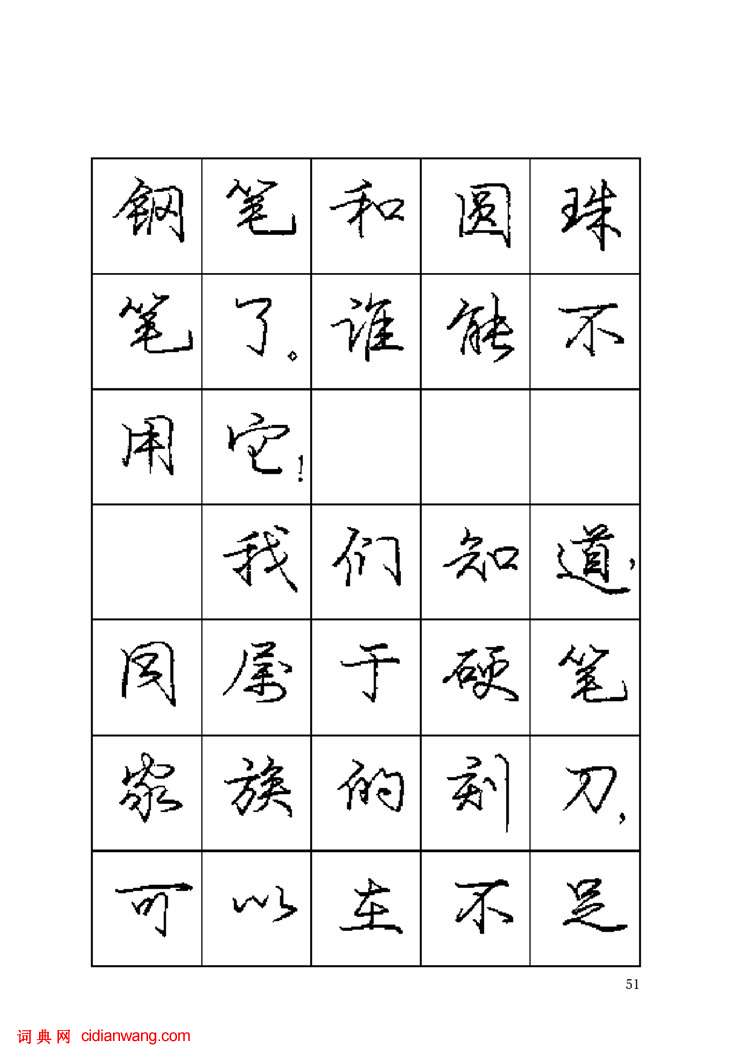 钢笔和圆珠
笔了。谁能不
用它！
我们知道，
同属于硬笔
家族的刻刀，
可以在不足
51
词典网 cidianwang.com